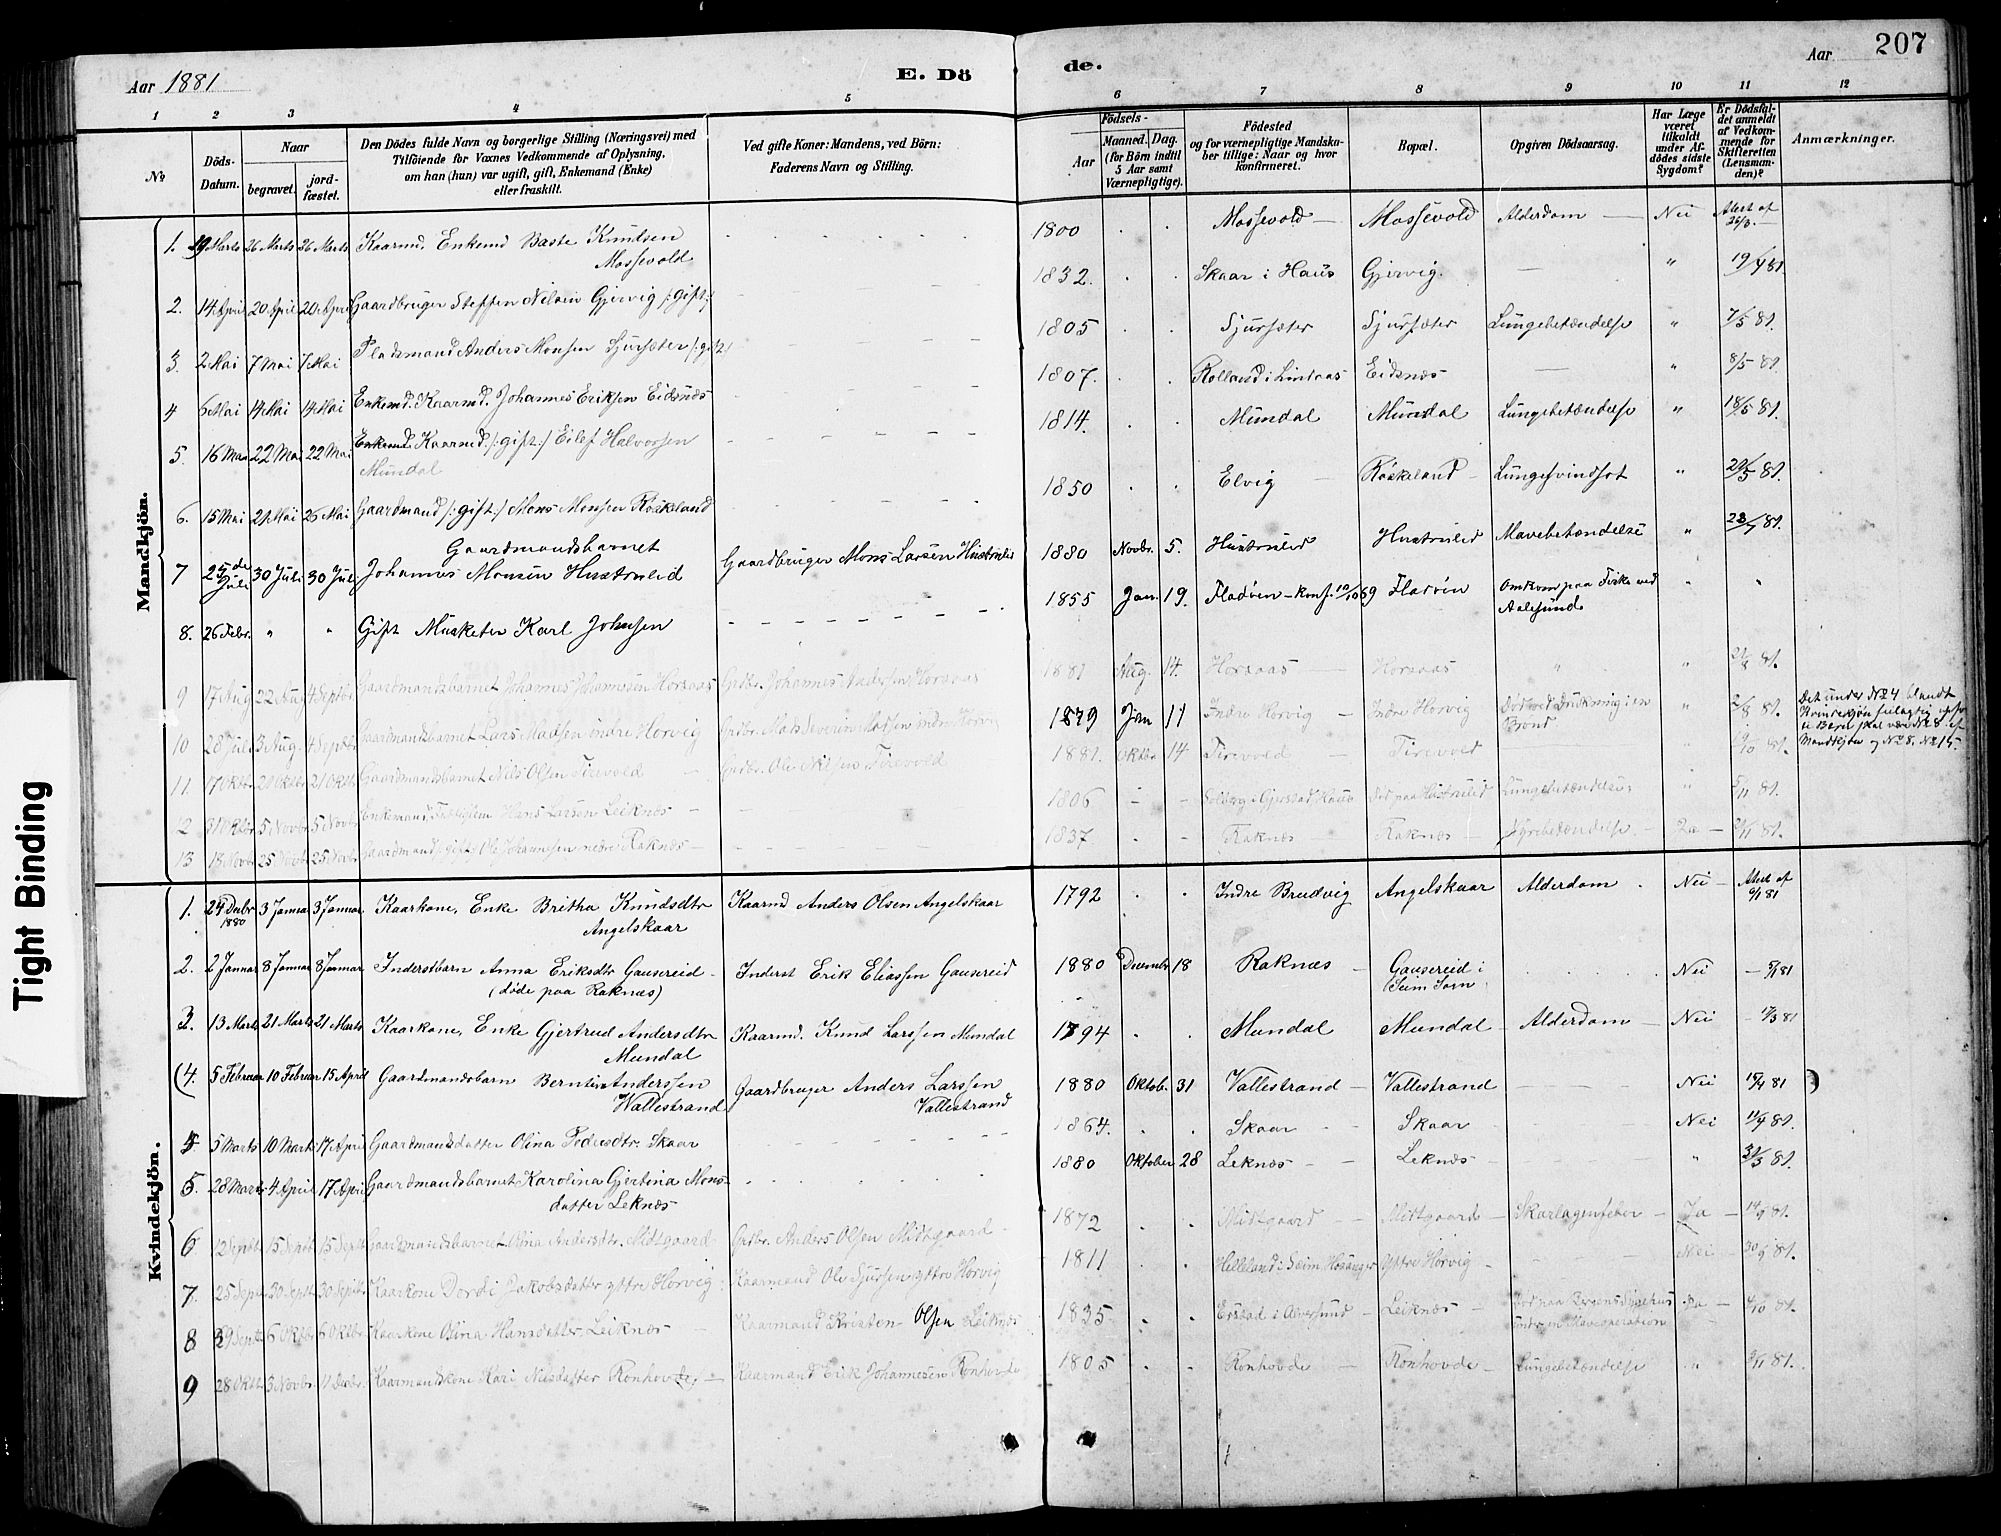 Aar 1881
E. Dö
de.
Aar
207
1 2 3 4 5 6 7 8 9 10 11 12
№
Döds-
Datum.
Naar
begravet.
jord-
fæstet.
Den Dödes fulde Navn og borgerlige Stilling (Næringsvei) med
Tilföiende for Voxnes Vedkommende af Oplysning,
om han (hun) var ugift, gift, Enkemand (Enke)
eller fraskilt.
Ved gifte Koner: Mandens, ved Börn:
Faderens Navn og Stilling.
Födsels-
Aar
Maaned. Dag.
(for Börn indtil
5 Aar samt
Værnepligtige).
Födested
og for værnepligtige Mandska-
ber tillige: Naar og hvor
konfirmeret.
Bopæl.
Opgiven Dödsaarsag.
Har Læge
været
tilkaldt
under Af-
dödes sidste
Sygdom?
Er Dödsfal-
det anmeldt
af Vedkom-
mende for
Skifteretten
(Lensman-
den)?
Anmærkninger.
Mandkjön.
1. 19 Marts 26 Marts 26 Marts Kaarmd. Enkemd Baste Knudsen Mossevold 1800 Mossevold Mossevold Alderdom Nei Attest af 26/3.
2. 14 April 20 April 20 April Gaardbruger Steffen Nilsen Gjervig /:gift:/ 1832. Skaar i Haus Gjervig. — " 19/4 81
3. 2 Mai 7 Mai 7 Mai Pladsmand Anders Monsen Sjursæter /:gift:/ 1805 Sjursæter Sjursæter Lungebetændelse " 7/5 81.
4 6 Mai 14 Mai 14 Mai Enkemd. Kaarmd. Johannes Eriksen Eidsnæs 1807. Rolland i Lindaas Eidsnæs — " 8/5 81.
5. 16 Mai 22 Mai 22 Mai Kaarmd. /:gift:/ Eilef Halvorsen Mundal 1814. Mundal Mundal Lungebetændelse " 18/5 81.
6. 15 Mai 21 Mai 26 Mai Gaardmand /:gift:/ Mons Monsen Röskeland 1850 Elvig Röskeland Lungesvindsot " 20/5 81.
7 25de Juli 30 Juli 30 Juli Gaardmandsbarnet Johannes Monsen Hustruleid Gaardbruger Mons Larsen Hustruleid 1880 Novbr. 5. Hustruleid Hustruleid Mavebetændelse " 28/7 81.
8. 26 Febr. " " Gift Musketer Karl Johnsen 1855 Jan. 19. Fladöen - konf. 10/10 69 Fladöen Omkom paa Fiske ved Aalesund " "
9 17 Aug 22 Aug 4 Septbr. Gaardmandsbarnet Johannes Johannesen Horsaas Grdbr. Johannes Andersen Horsaas 1881 Aug. 14. Horsaas Horsaas " " 21/8 81.
10 28 Juli 3 Aug. 4 Septbr Gaardmandsbarnet Lars Madsen indre Horvig Grdbr. Mads Severin Madsen indre Horvig 1879 Jan 11 Indre Horvig Indre Horvig Död ved Drukning i en Brönd " 2/8 81. Det under № 4 blandt Kvindekjön
11. 17 Oktbr 21 Oktbr 21 Oktbr Gaardmandsbarnet Nils Olsen Tirevold Grdbr. Ole Nilsen Tirevold 1881. Oktbr 14 Tirevold Tirevold 19/10 81. Mandkjön og № 8. № 15.
12 31 Oktbr 5 Novbr 5 Novbr. Enkemand, Fattiglem Hans Larsen Leiknæs 1806 Solberg i Gjerstad, Haus Död paa Hustruleid Lungebetændelse " 5/11 81.
13 18 Novbr 25 Novbr 25 Novbr. Gaardmand /:gift:/ Ole Johannesen nedre Raknæs 1837 Raknæs Raknæs Nyrebetændelse Ja 21/11 81.
Kvindekjön.
1. 24 Decbr 1880 3 Januar 3 Januar Kaarkone, Enke Britha Knudsdtr Angelskaar Kaarmd Anders Olsen Angelskaar 1792 Indre Brudvig Angelskaar Alderdom Nei Attest af 6/1 81
2. 2 Januar 8 Januar 8 Januar Inderstbarn Anna Eriksdtr Gausereid (döde paa Raknæs) Inderst Erik Eliassen Gausereid 1880 Decembr 18 Raknæs Gausereid i (Seim Sogn Nei 5/1 81
3. 13 Marts 21 Marts 21 Marts Kaarkone, Enke Gjertrud Andersdtr Mundal Kaarmd. Knud Larssen Mundal 1794 Mundal Mundal Alderdom Nei 17/3 81
(4. 5 Februar 10 Februar 15 April Gaardmandsbarn Berntin Anderssen Vallestrand Gaardbruger Anders Larssen Vallestrand 1880 Oktob. 31 Vallestrand Vallestrand Nei 15/4 81 )
4. 5 Marts 10 Marts 17 April Gaardmandsdatter Olina Pedersdtr. Skaar 1864. Skaar Skaar Nei 11/4 81.
5. 28 Marts 4 April 17 April Gaardmandsbarnet Karolina Gjertina Monsdatter Leknæs 1880 Oktober 28 Leknæs Leknæs " 31/3 81.
6 12 Septbr 15 Septbr 15 Septbr Gaardmandsbarnet Andersdtr. Midtgaard Grdbr. Anders Olsen Midtgaard 1872 Midtgaard Midtgaard Skarlagensfeber Ja 14/9 81.
7. 25 Septbr 30 Septbr 30 Septbr Kaarkone Dordi Jakobsdatter yttre Horvig Kaarmand Ole Sjursen yttre Horvig 1811 Helleland i Seim, Hosanger Yttre Horvig Nei 30/9 81.
8 29 Septbr 6 Oktbr 6 Oktbr. Kaarkone Olina Hansdatter Leiknæs Kaarmand Kristen Olsen Leiknæs 1835 i Alversund Leiknæs Död paa Bergens Sygehus under en Maveoperation Ja 4/10 81.
9 28 Oktbr 3 Novbr. 11 Decbr. Kaarmandskone Kari Nilsdatter Ronhovde Kaarmand Erik Johannesen Ronhovde 1805 Ronhovde Ronhovde Lungebetændelse " 3/11 81.
Tight Binding